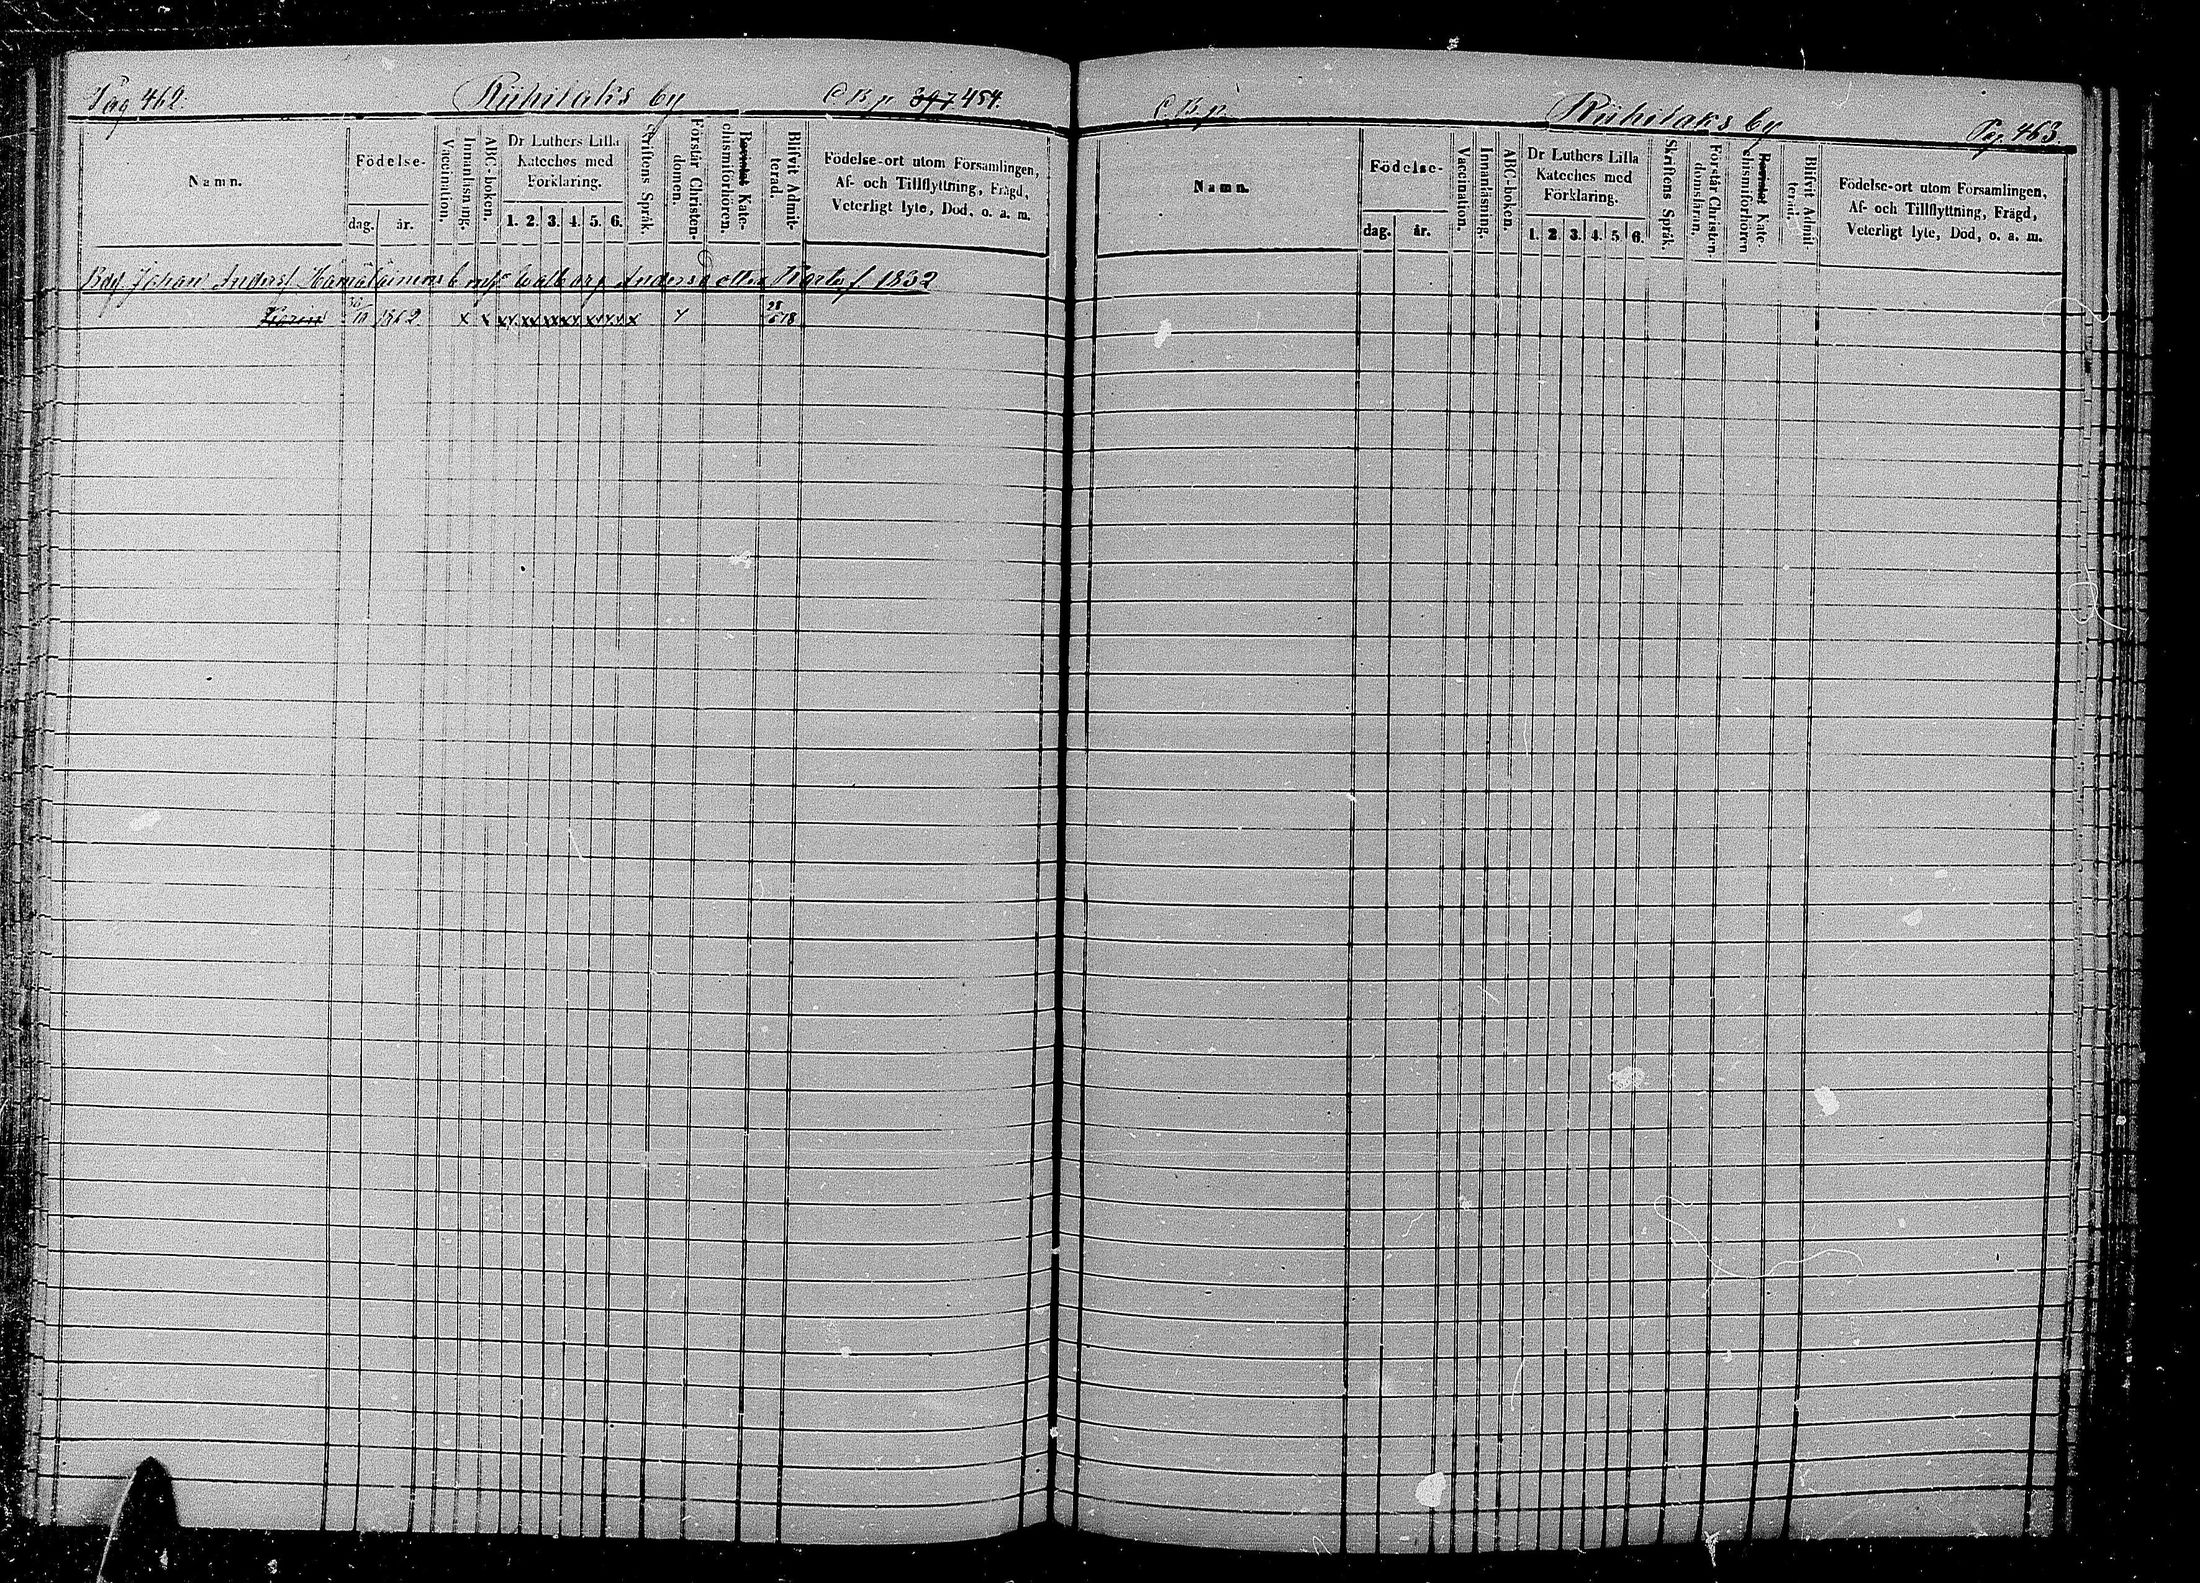 Pag 462. Riihilaks by C B p 397 454.
Namn.
Födelse-
dag. år.
Vaccination.
Innanläsning.
ABC-boken.
Dr Luthers Lilla
Kateches med
Förklaring.
1. 2. 3. 4. 5. 6.
Skriftens Språk.
Förstår Christen-
domen.
Bevistat Kate-
chismiförhören.
Blifvit Admit-
terad.
Födelse-ort utom Församlingen,
Af- och Tillflyttning, Frägd,
Veterligt lyte, Död, o. a. m.
Johan Andersf Hämäläinens Walborg Andersdotter 1832
10 1862 x x xx xx xx xx xx xx x 78
C. B. p. Riihilaks by Pag. 463.
Namn.
Födelse-
dag. år.
Vaccination.
Innanläsning.
ABC-boken.
Dr Luthers Lilla
Kateches med
Förklaring.
1. 2. 3. 4. 5. 6.
Skriftens Språk.
Förstår Christen-
domsläran.
Bevistat Kate-
chismiförhören
Blifvit Admit-
terad.
Födelse-ort utom Församlingen,
Af- och Tillflyttning, Frägd,
Veterligt lyte, Död, o. a. m.